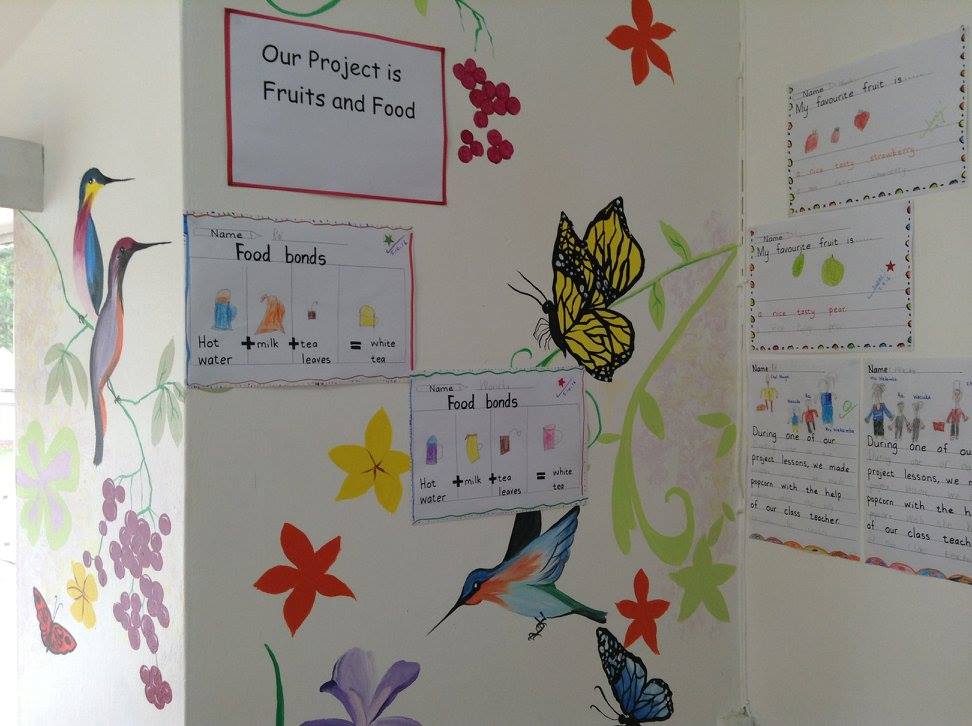 Our Project is
Fruits and Food
Name
Food bonds
Hot water + milk + tea leaves = white tea
Name
Food bonds
Hot water + milk + tea leaves = white tea
Name
My favourite fruit is......
a nice tasty strawberry
Name
My favourite fruit is......
a nice tasty pear
Name
During one of our
project lessons, we made
popcorn with the help
of our class teacher.
Name
During one of ou
project lessons, we m
popcorn with the h
of our class teach